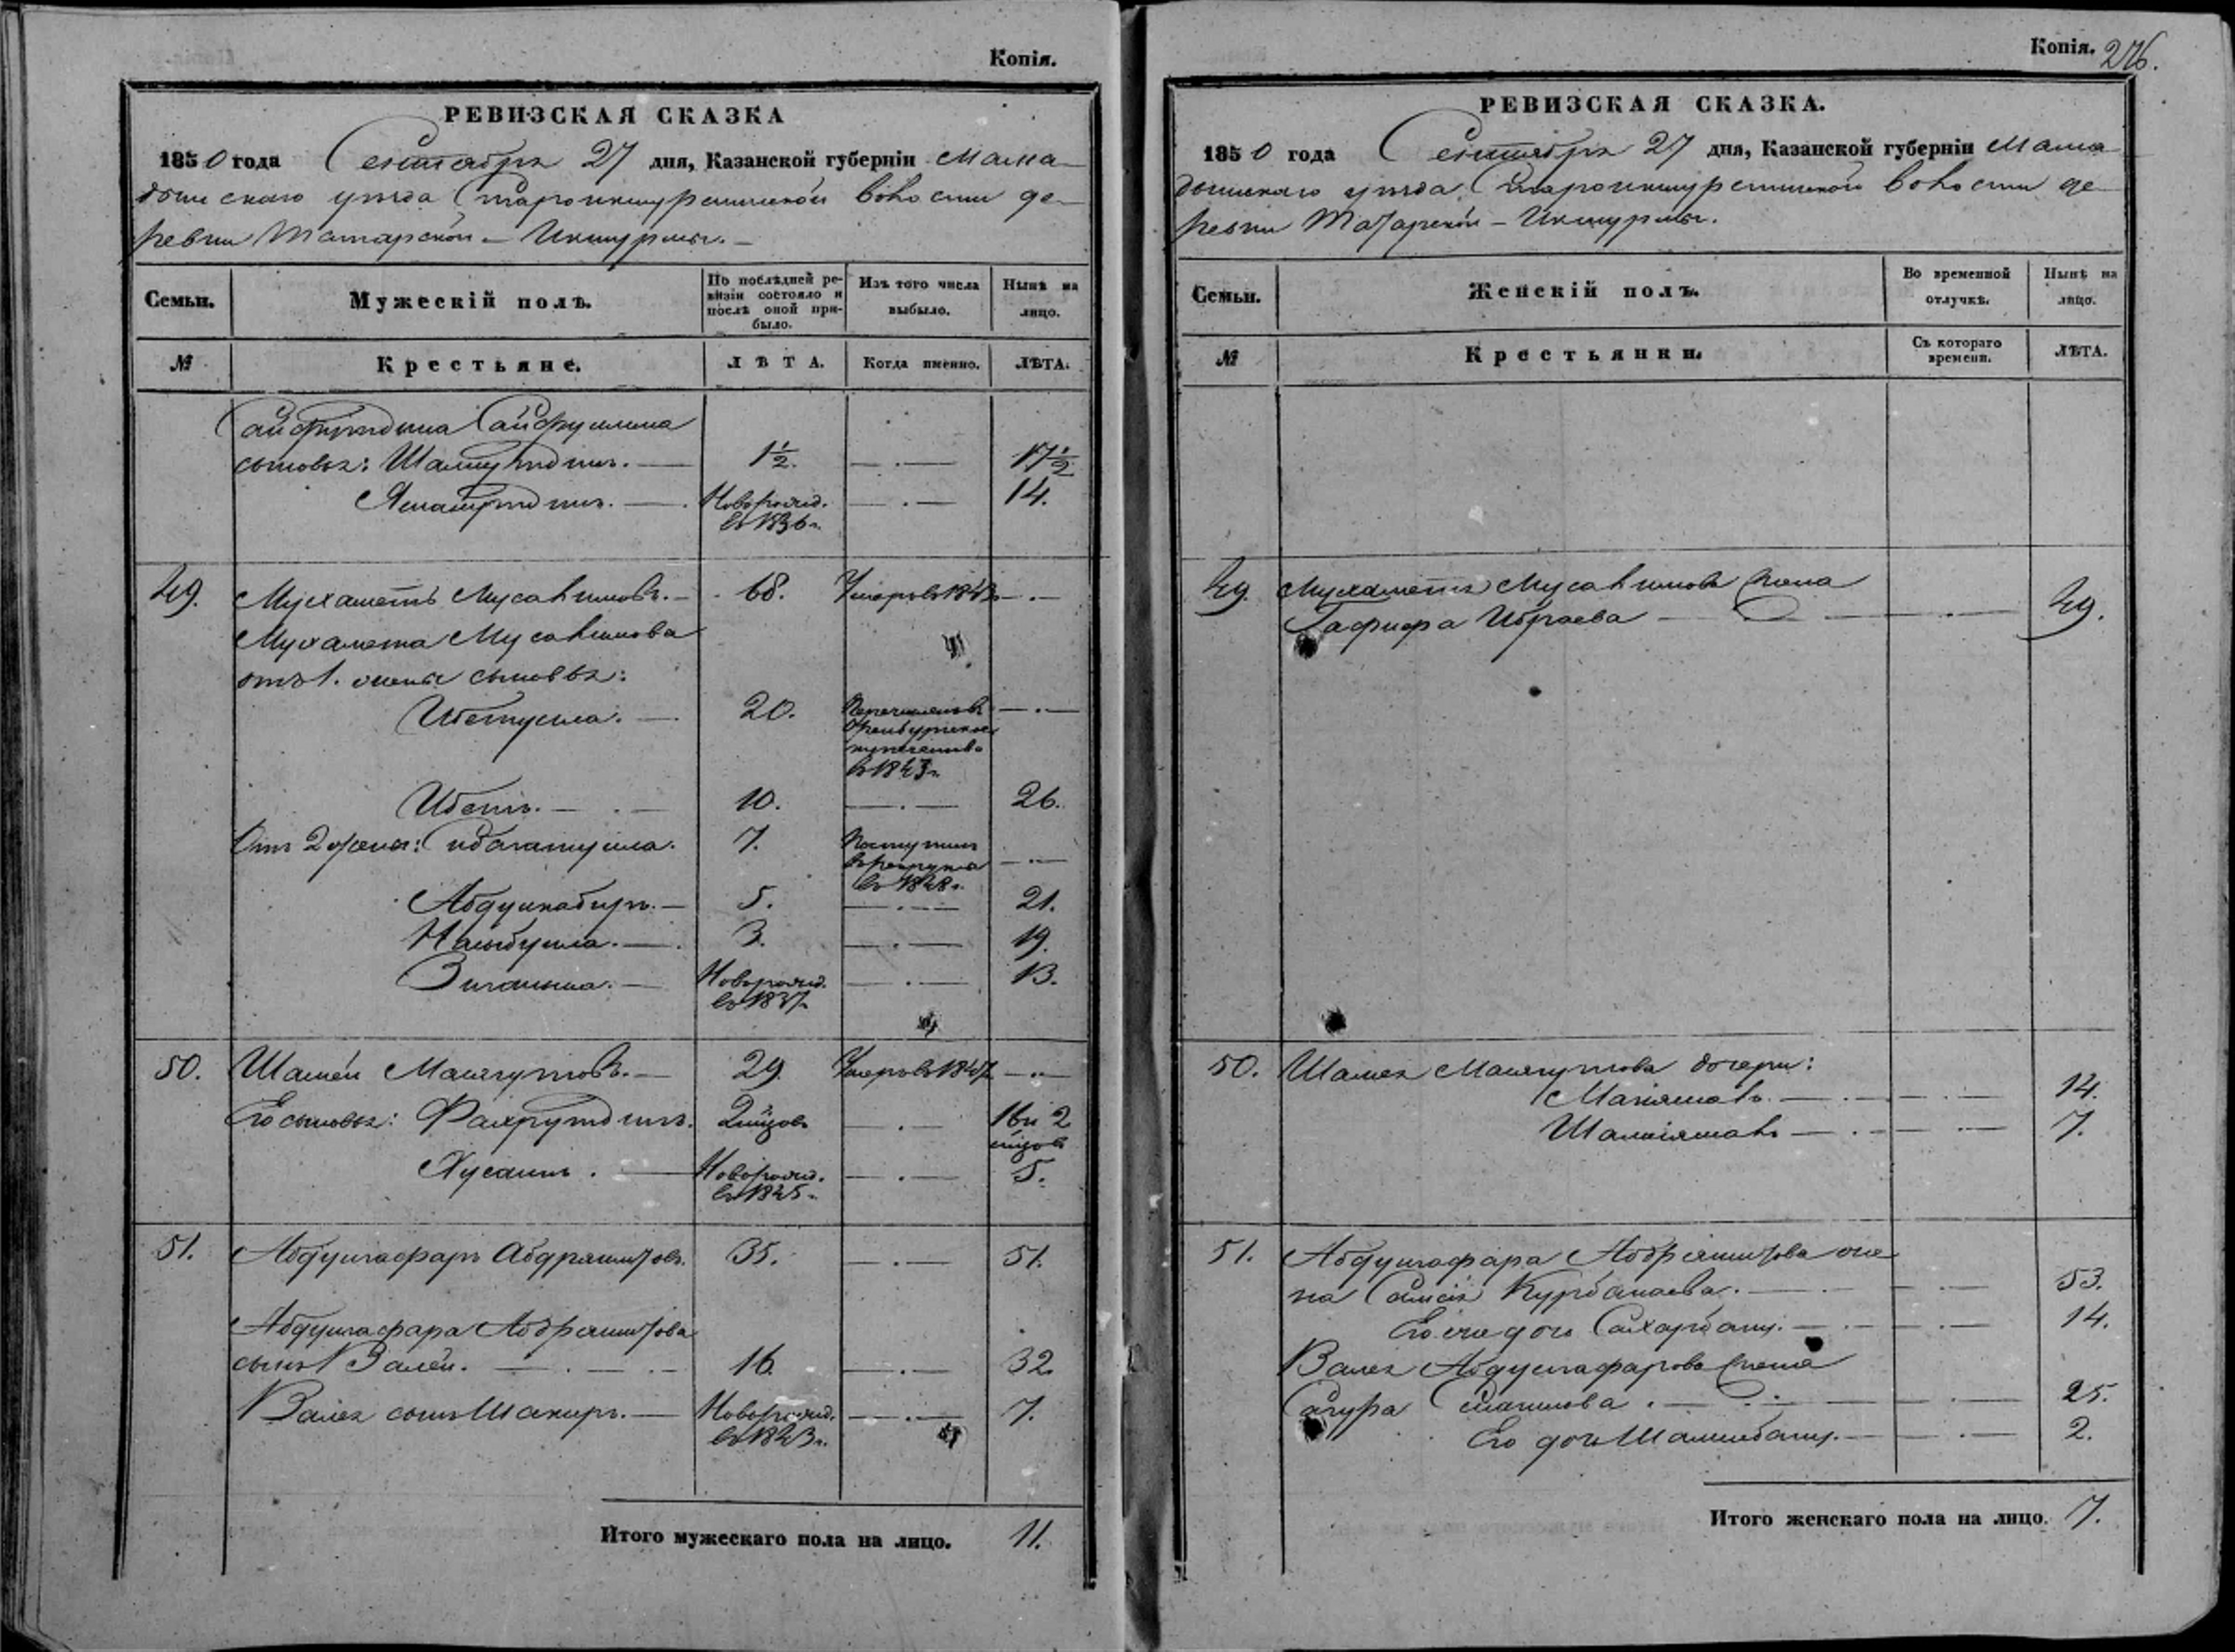 Копія.
РЕВИЗСКАЯ СКАЗКА
1850 года Сентября 27 дня, Казанской губерніи Мама-
дышскаго уѣзда Староикшурминской волости де-
ревни Татарской – Икшурмы. –
Семьи.
Мужескій полъ.
По послѣдней ре-
визіи состояло и
послѣ оной при-
было.
Изъ того числа
выбыло.
Нынѣ на
лицо.
№
Крестьяне.
ЛѢТА.
Когда именно.
ЛѢТА.
Сайфутдина Сайфуллина
сыновья: Шамсутдинъ. — 1½. — . — 17½
Новорожд. — . — 14.
въ 1836 г.
49. Мухаметъ . — 68. Умеръ въ 1843 — . —
Мухамета
отъ 1. жены сыновья:
20. Перечисленъ въ — . —
Оренбургское
купечество
въ 1843 г.
10. — . — 26.
Отъ 2 жены: 7. Поступилъ
въ рекруты — . —
въ 1848 г.
5. — . — 21.
3. — . — 19.
Зиганша. — Новорожд. — . — 13.
въ 1837
50. Шамей Масягутовъ. — 29. Умеръ въ 1847 — . —
Его сыновья: Фахрутдинъ. — . — 16 и 2
Хусаинъ. — Новорожд. — . — 5.
въ 1845 г.
51. Абдулгафаръ Абдряшитовъ. 35. — . — 51.
Абдулгафара Абдряшитова
сынъ Валей. — . — 16. — . — 32.
Валея сынъ Шакиръ. — Новорожд. — . — 7.
въ 1843 г.
Итого мужескаго пола на лицо. 11.
Копія. 276.
РЕВИЗСКАЯ СКАЗКА.
1850 года Сентября 27 дня, Казанской губерніи Мама
дышскаго уѣзда Староикшурминской волости де-
ревни Татарской – Икшурмы.
Семьи.
Женскій полъ.
Во временной
отлучкѣ.
Нынѣ на
лицо.
№
Крестьянки.
Съ котораго
времени.
ЛѢТА.
49. Мухаметъ жена
Гафифа Ибраева — . — 49.
50. Шамея Масягутова дочери:
— . — 14.
— . — 7.
51. Абдулгафара Абдряшитова же-
на Курбанаева. — . — 53.
Его же дочь Сахарбану. — . — 14.
Валея Абдулгафарова жена
Сагура — . — 25.
Его дочь Шамсибану. — . — 2.
Итого женскаго пола на лицо. 7.